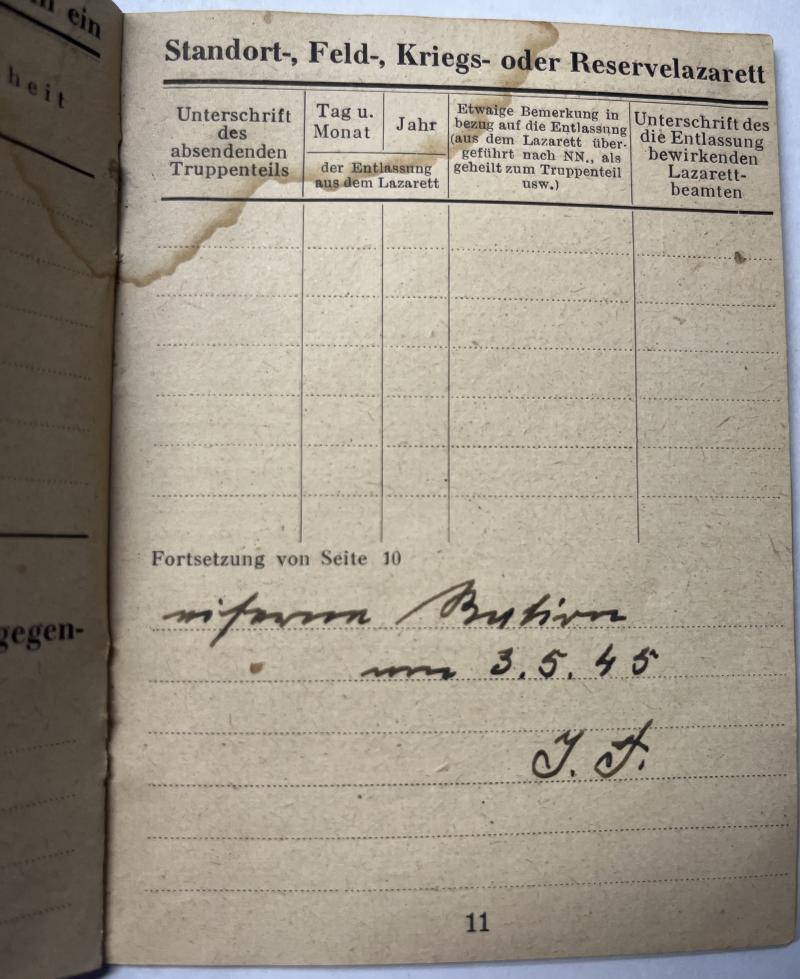 ein
heit
gegen-
Standort-, Feld-, Kriegs- oder Reservelazarett
Unterschrift
des
absendenden
Truppenteils
Tag u.
Monat
Jahr
der Entlassung
aus dem Lazarett
Etwaige Bemerkung in
bezug auf die Entlassung
(aus dem Lazarett über-
geführt nach NN., als
geheilt zum Truppenteil
usw.)
Unterschrift des
die Entlassung
bewirkenden
Lazarett-
beamten
Fortsetzung von Seite 10
eiserne Ration
am 3.5.45
J. F.
11